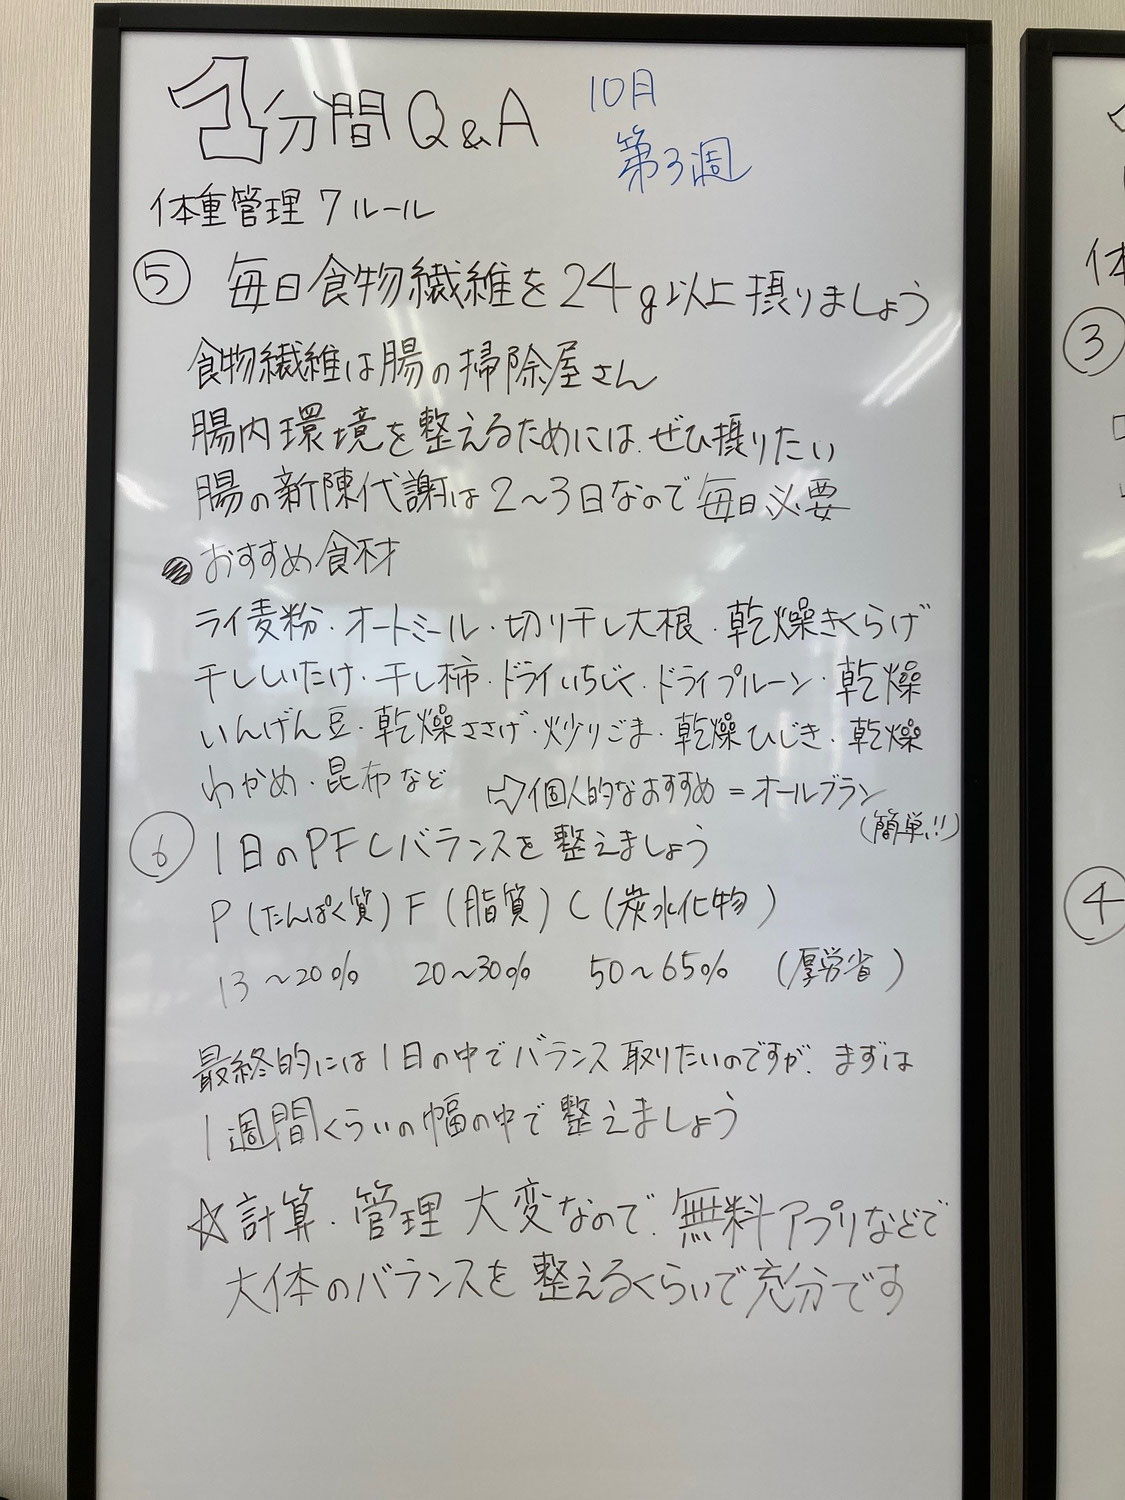 1分間Q&A
10月
第3週
体重管理7ルール
⑤ 毎日食物繊維を24g以上摂りましょう
食物繊維は腸の掃除屋さん
腸内環境を整えるためには、ぜひ摂りたい
腸の新陳代謝は2～3日なので毎日必要
●おすすめ食材
ライ麦粉・オートミール・切り干し大根・乾燥きくらげ
干ししいたけ・干し柿・ドライいちじく・ドライプルーン・乾燥
いんげん豆・乾燥ささげ・炒りごま・乾燥ひじき・乾燥
わかめ・昆布など ⇨個人的なおすすめ=オールブラン
(簡単!!)
⑥ 1日のPFCバランスを整えましょう
P(たんぱく質) F(脂質) C(炭水化物)
13～20% 20～30% 50～65% (厚労省)
最終的には1日の中でバランス取りたいのですが、まずは
1週間くらいの幅の中で整えましょう
☆計算・管理 大変なので、無料アプリなどで
大体のバランスを整えるくらいで充分です
体
③
④